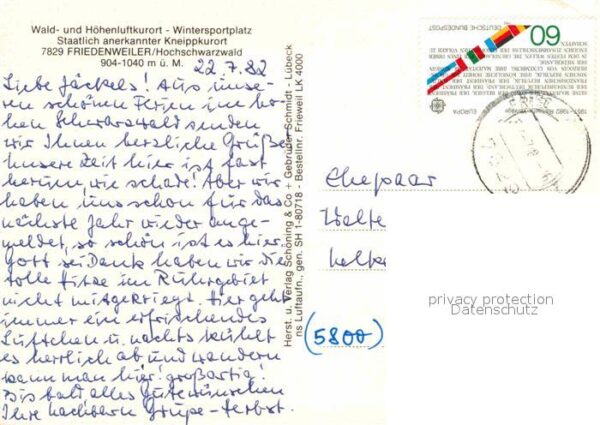 Wald- und Höhenluftkurort - Wintersportplatz
Staatlich anerkannter Kneippkurort
7829 FRIEDENWEILER/Hochschwarzwald
904-1040 m ü. M.
22.7.82
Liebe Jäckels! Aus unse-
ren schönen Ferien im ho-
hen Schwarzwald senden
wir Ihnen herzliche Grüße
Unsere Zeit hier ist fast
herum, wie schade! Aber wir
haben uns schon für das
nächste Jahr wieder ange-
meldet, so schön ist es hier.
Gott sei Dank haben wir die
tolle Hitze im Ruhrgebiet
nicht mitgekriegt. Hier geht
immer ein erfrischendes
Lüftchen u. nachts kühlt
es herrlich ab und wandern
kann man hier! großartig!
Bis bald alles gute wünschen
Ihre Nachbarn
Herst. u. Verlag Schöning & Co + Gebrüder Schmidt - Lübeck
ns Luftaufn., gen. SH 1-80718 - Bestellnr. Frieweil LK 4000
60
DEUTSCHE BUNDESPOST
EUROPA
Ehepaar
Walte
(5800)
privacy protection
Datenschutz